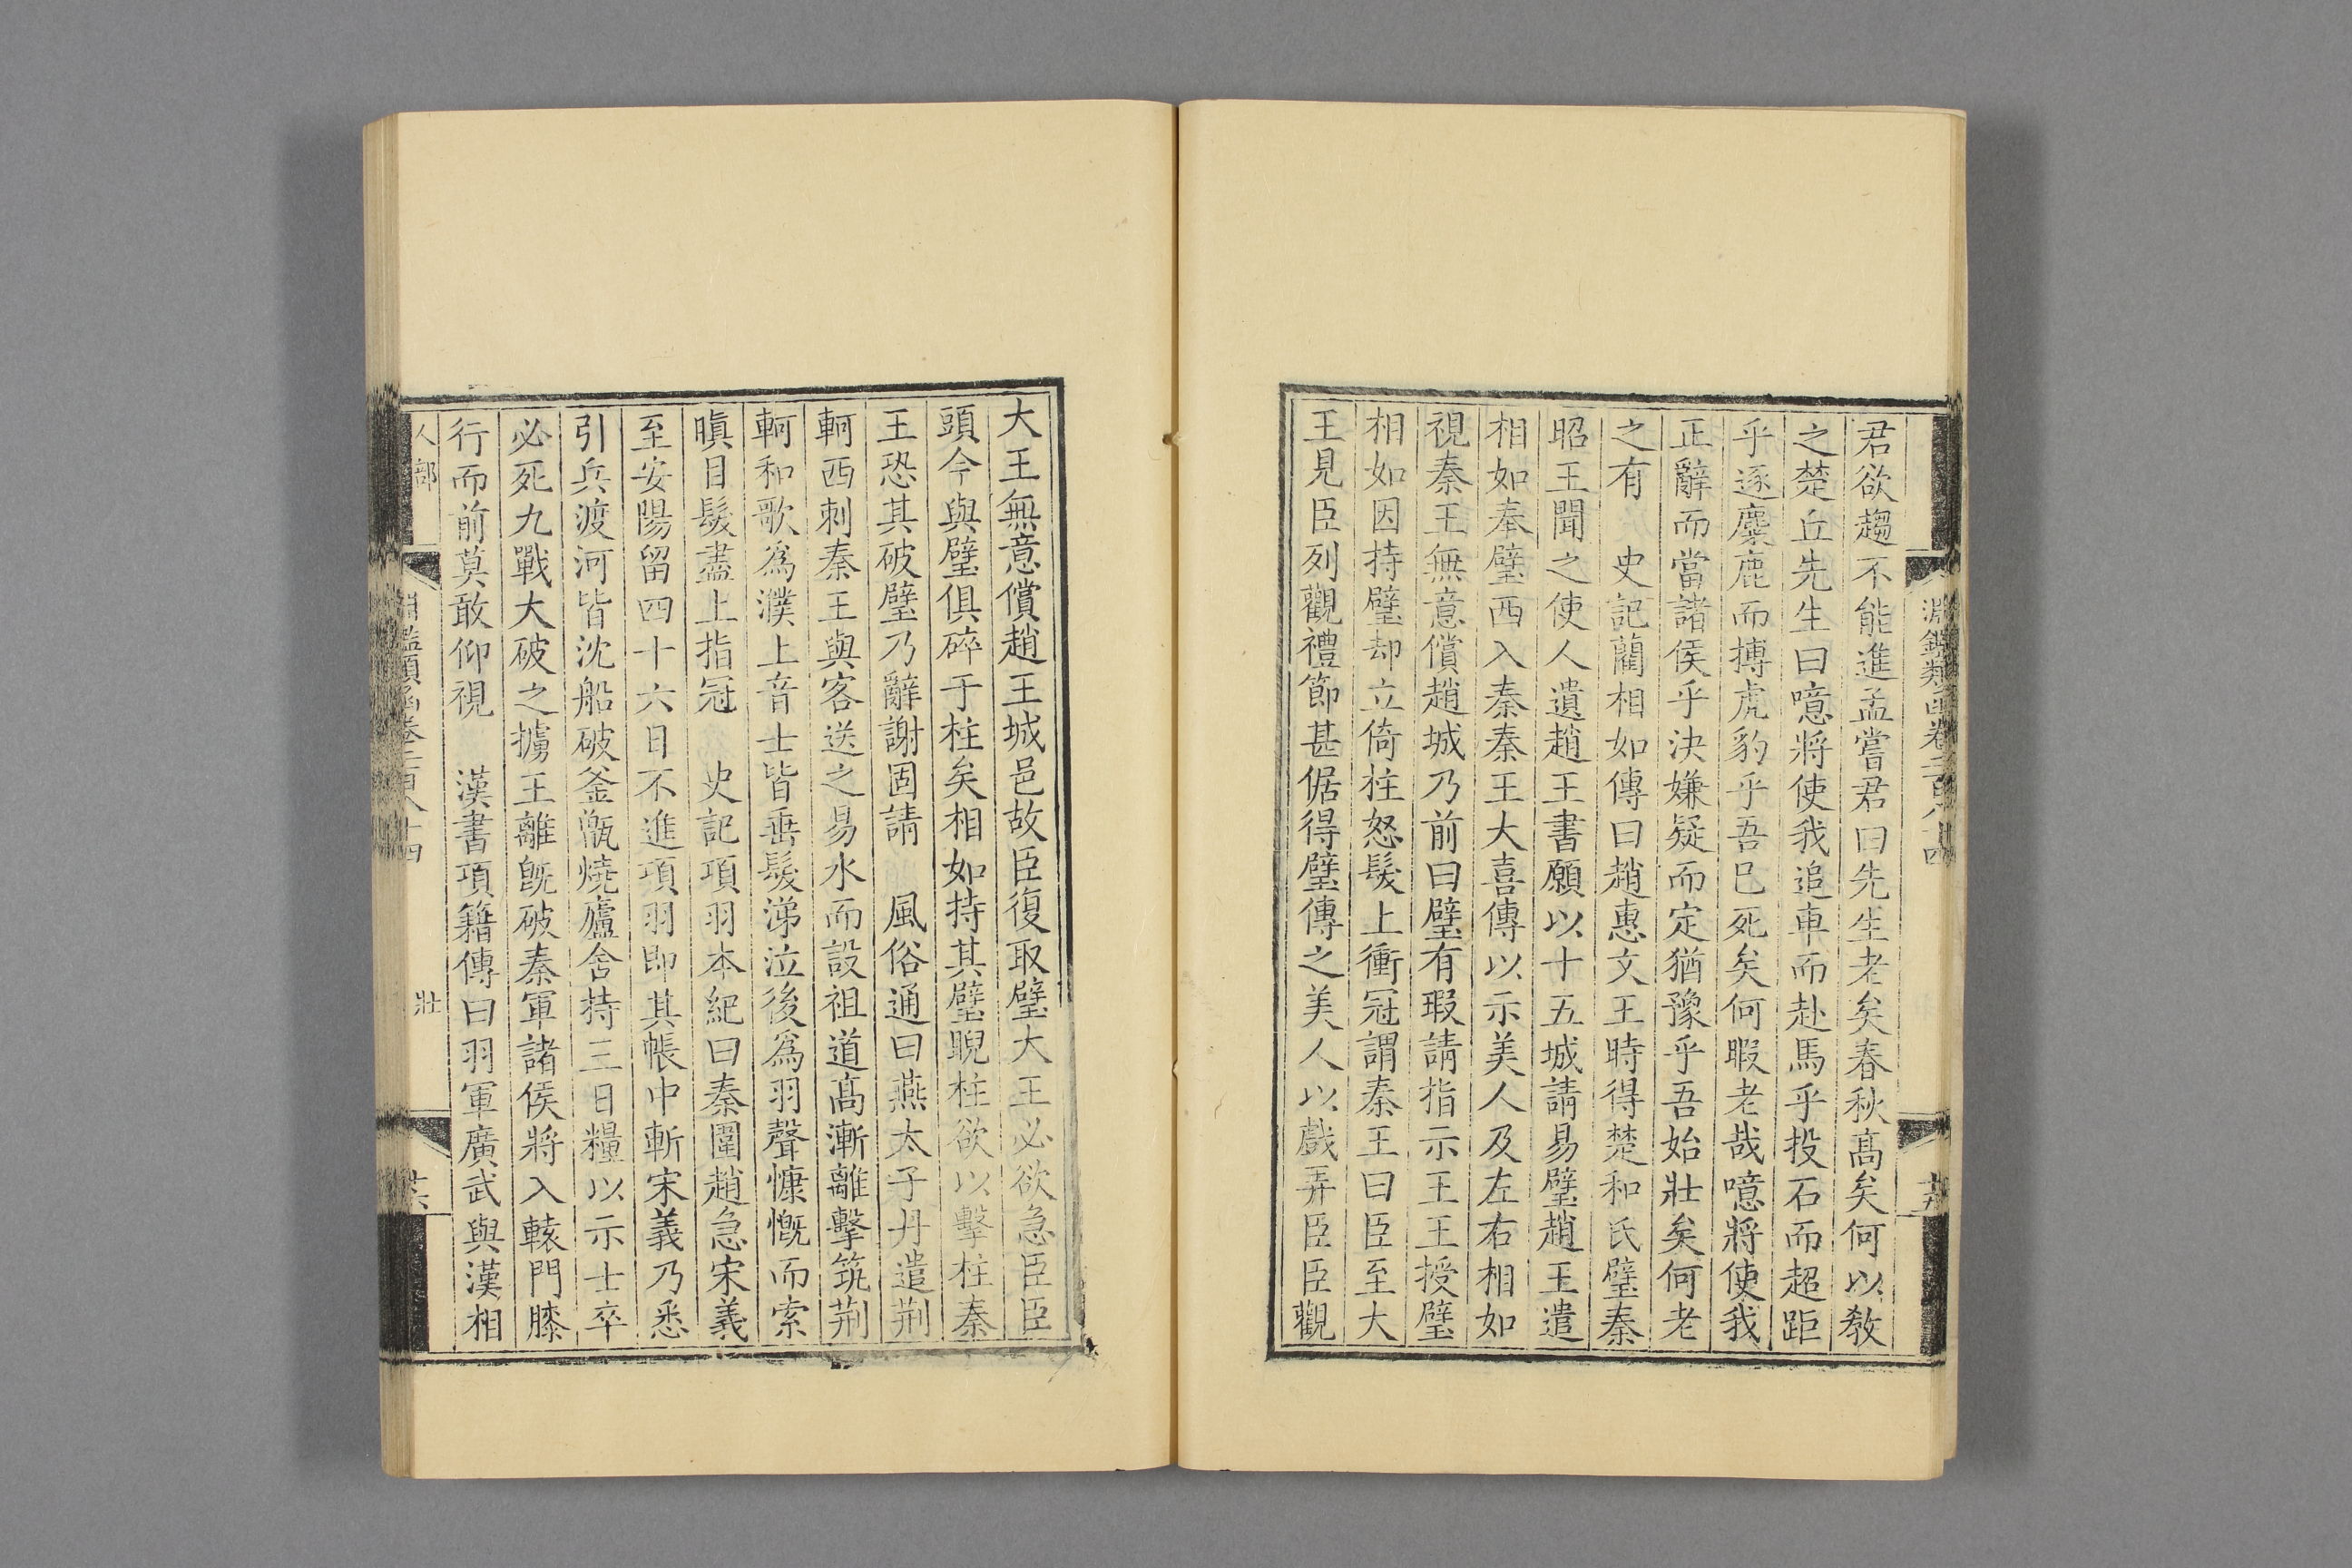 淵鑑類函卷二百八十四
廿五
君欲趨不能進孟嘗君曰先生老矣春秋髙矣何以敎
之楚丘先生曰噫將使我追車而赴馬乎投石而超距
乎逐麋鹿而搏虎豹乎吾巳死矣何暇老哉噫將使我
正辭而當諸侯乎決嫌疑而定猶豫乎吾始壯矣何老
之有 史記藺相如傳曰趙惠文王時得楚和氏璧秦
昭王聞之使人遺趙王書願以十五城請易璧趙王遣
相如奉璧西入秦秦王大喜傳以示美人及左右相如
視秦王無意償趙城乃前曰璧有瑕請指示王王授璧
相如因持璧却立倚柱怒髮上衝冠謂秦王曰臣至大
王見臣列觀禮節甚倨得璧傳之美人以戲弄臣臣觀
大王無意償趙王城邑故臣復取璧大王必欲急臣臣
頭今與璧俱碎于柱矣相如持其璧睨柱欲以擊柱秦
王恐其破璧乃辭謝固請 風俗通曰燕太子丹遣荆
軻西刺秦王與客送之易水而設祖道髙漸離擊筑荆
軻和歌爲濮上音士皆垂髮涕泣後爲羽聲慷慨而索
瞋目髮盡上指冠 史記項羽本紀曰秦圍趙急宋義
至安陽留四十六日不進項羽即其帳中斬宋義乃悉
引兵渡河皆沈船破釜甑燒廬舍持三日糧以示士卒
必死九戰大破之擄王離旣破秦軍諸侯將入轅門膝
行而前莫敢仰視 漢書項籍傳曰羽軍廣武與漢相
人部
淵鑑類函卷二百八十四
壯
廿六